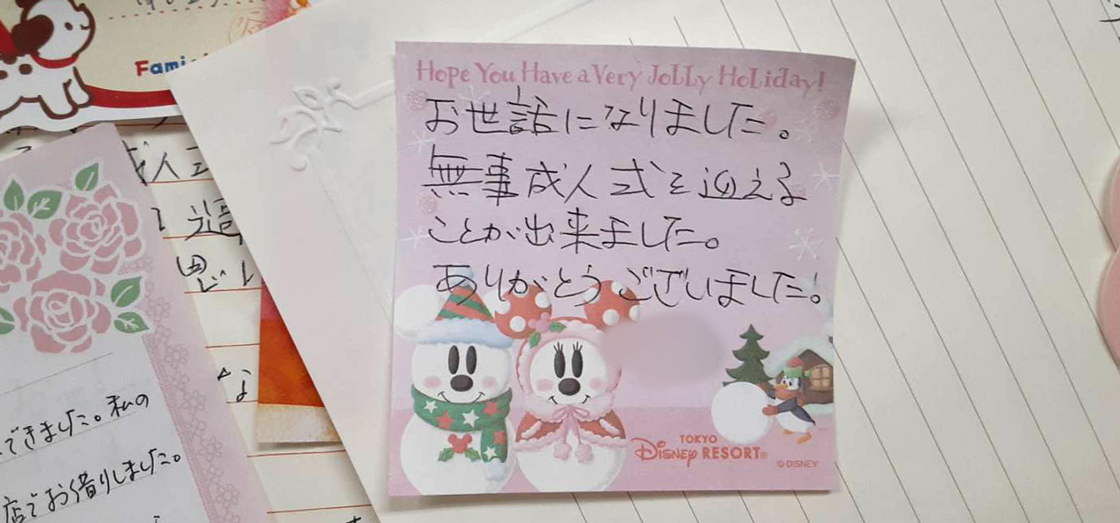 Hope You Have a Very Jolly Holiday!
お世話になりました。
無事成人式を迎える
ことが出来ました。
ありがとうございました!
TOKYO
Disney RESORT®
© DISNEY
できました。私の
店でお借りしました。